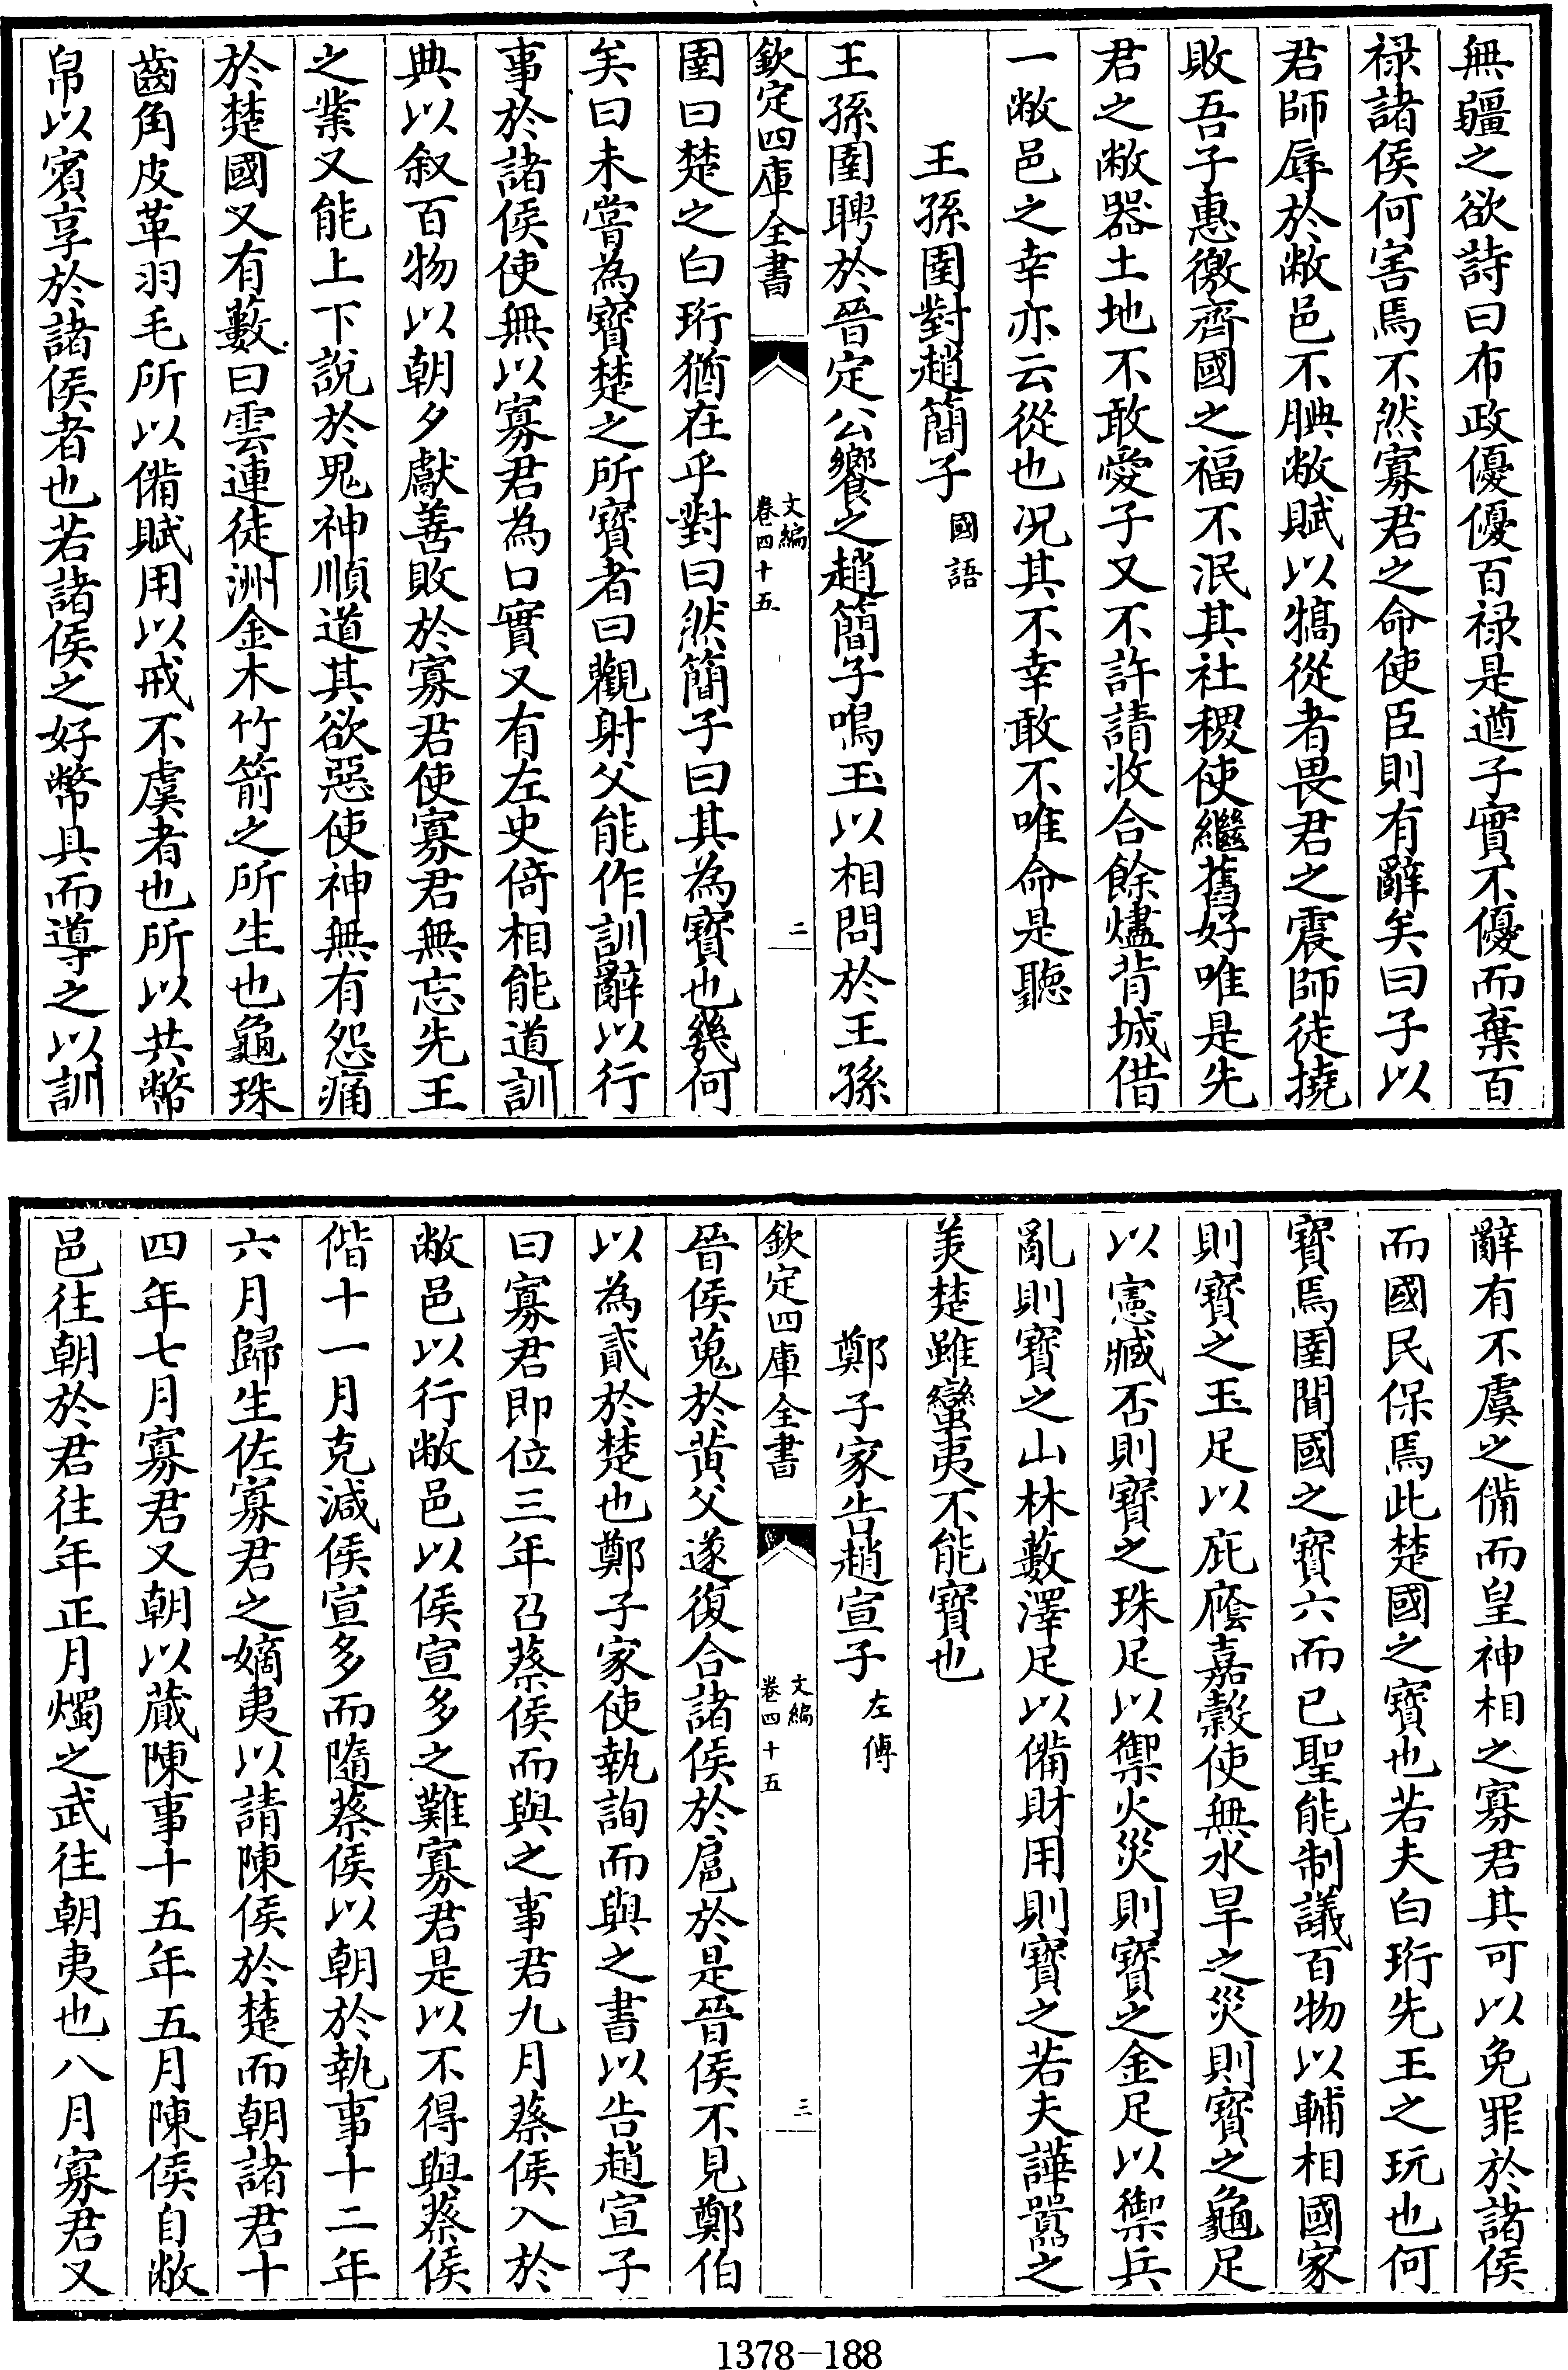 無疆之欲詩曰布政優優百禄是遒子實不優而棄百
禄諸侯何害焉不然寡君之命使臣則有辭矣曰子以
君師辱於敝邑不腆敝賦以犒從者畏君之震師徒撓
敗吾子惠徼齊國之福不泯其社稷使繼舊好唯是先
君之敝器土地不敢愛子又不許請收合餘燼背城借
一敝邑之幸亦云從也况其不幸敢不唯命是聽
王孫圉對趙簡子 國語
王孫圉聘於晉定公饗之趙簡子鳴玉以相問於王孫
欽定四庫全書 文編 卷四十五 二
圉曰楚之白珩猶在乎對曰然簡子曰其為寶也幾何
矣曰未嘗為寶楚之所寶者曰觀射父能作訓辭以行
事於諸侯使無以寡君為口實又有左史倚相能道訓
典以叙百物以朝夕獻善敗於寡君使寡君無忘先王
之業又能上下說於鬼神順道其欲惡使神無有怨痛
於楚國又有藪曰雲連徒洲金木竹箭之所生也龜珠
齒角皮革羽毛所以備賦用以戒不虞者也所以共幣
帛以賓享於諸侯者也若諸侯之好幣具而導之以訓
辭有不虞之備而皇神相之寡君其可以免罪於諸侯
而國民保焉此楚國之寶也若夫白珩先王之玩也何
寶焉圉聞國之寶六而已聖能制議百物以輔相國家
則寶之玉足以庇廕嘉糓使無水旱之災則寶之龜足
以憲臧否則寶之珠足以禦火災則寶之金足以禦兵
亂則寶之山林藪澤足以備財用則寶之若夫譁囂之
美楚雖蠻夷不能寶也
鄭子家告趙宣子 左傳
欽定四庫全書 文編 卷四十五 三
晉侯蒐於黄父遂復合諸侯於扈於是晉侯不見鄭伯
以為貳於楚也鄭子家使執訊而與之書以告趙宣子
曰寡君即位三年召蔡侯而與之事君九月蔡侯入於
敝邑以行敝邑以侯宣多之難寡君是以不得與蔡侯
偕十一月克減侯宣多而隨蔡侯以朝於執事十二年
六月歸生佐寡君之嫡夷以請陳侯於楚而朝諸君十
四年七月寡君又朝以蕆陳事十五年五月陳侯自敝
邑往朝於君往年正月燭之武往朝夷也八月寡君又
1378-188